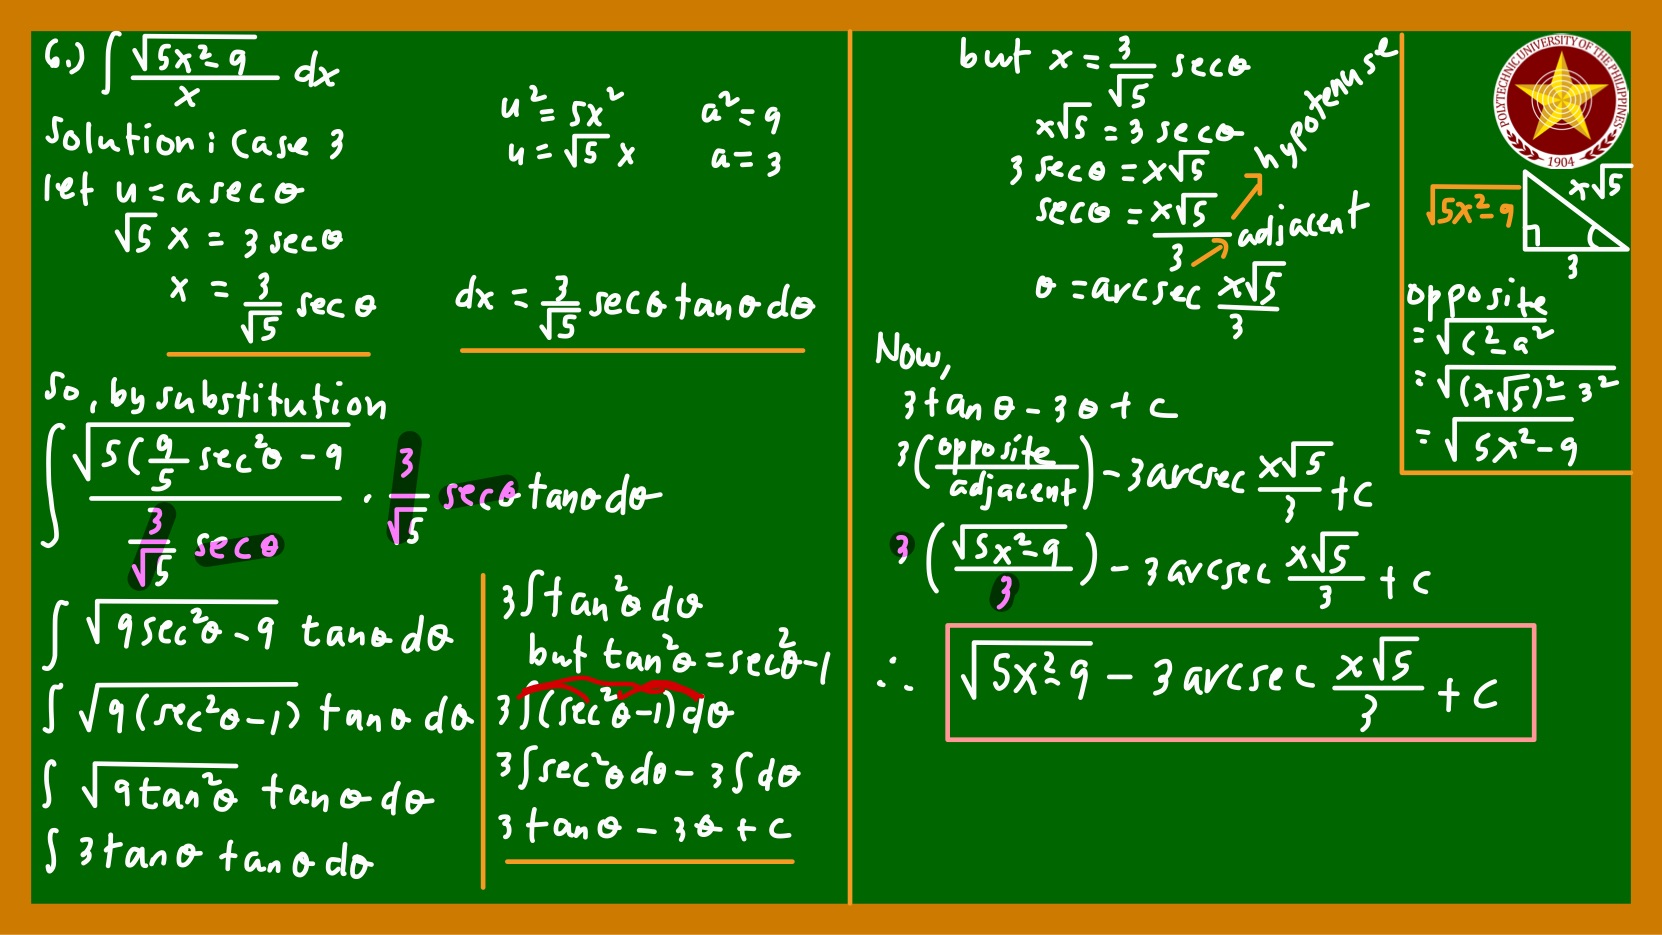 6.) ∫ √(5x²-9) / x dx
Solution: Case 3
let u = a sec θ
√5 x = 3 sec θ
x = 3/√5 sec θ
u² = 5x²
u = √5 x
a² = 9
a = 3
dx = 3/√5 sec θ tan θ dθ
So, by substitution
∫ √(5(9/5 sec²θ - 9) / (3/√5 sec θ) · 3/√5 sec θ tan θ dθ
∫ √(9sec²θ - 9) tan θ dθ
∫ √(9(sec²θ-1)) tan θ dθ
∫ √(9tan²θ) tan θ dθ
∫ 3tan θ tan θ dθ
3∫tan²θ dθ
but tan²θ = sec²θ-1
3∫(sec²θ-1)dθ
3∫sec²θ dθ - 3∫dθ
3 tan θ - 3θ + C
but x = 3/√5 sec θ
x√5 = 3 sec θ
3 sec θ = x√5
sec θ = x√5/3
hypotenuse
adjacent
θ = arcsec x√5/3
Now,
3tan θ - 3θ + C
3(opposite/adjacent) - 3arcsec x√5/3 + C
3(√(5x²-9)/3) - 3arcsec x√5/3 + C
∴ √(5x²-9) - 3arcsec x√5/3 + C
POLYTECHNIC UNIVERSITY OF THE PHILIPPINES
1904
√(5x²-9)
x√5
3
opposite
= √(c²-a²)
= √((x√5)²-3²)
= √(5x²-9)